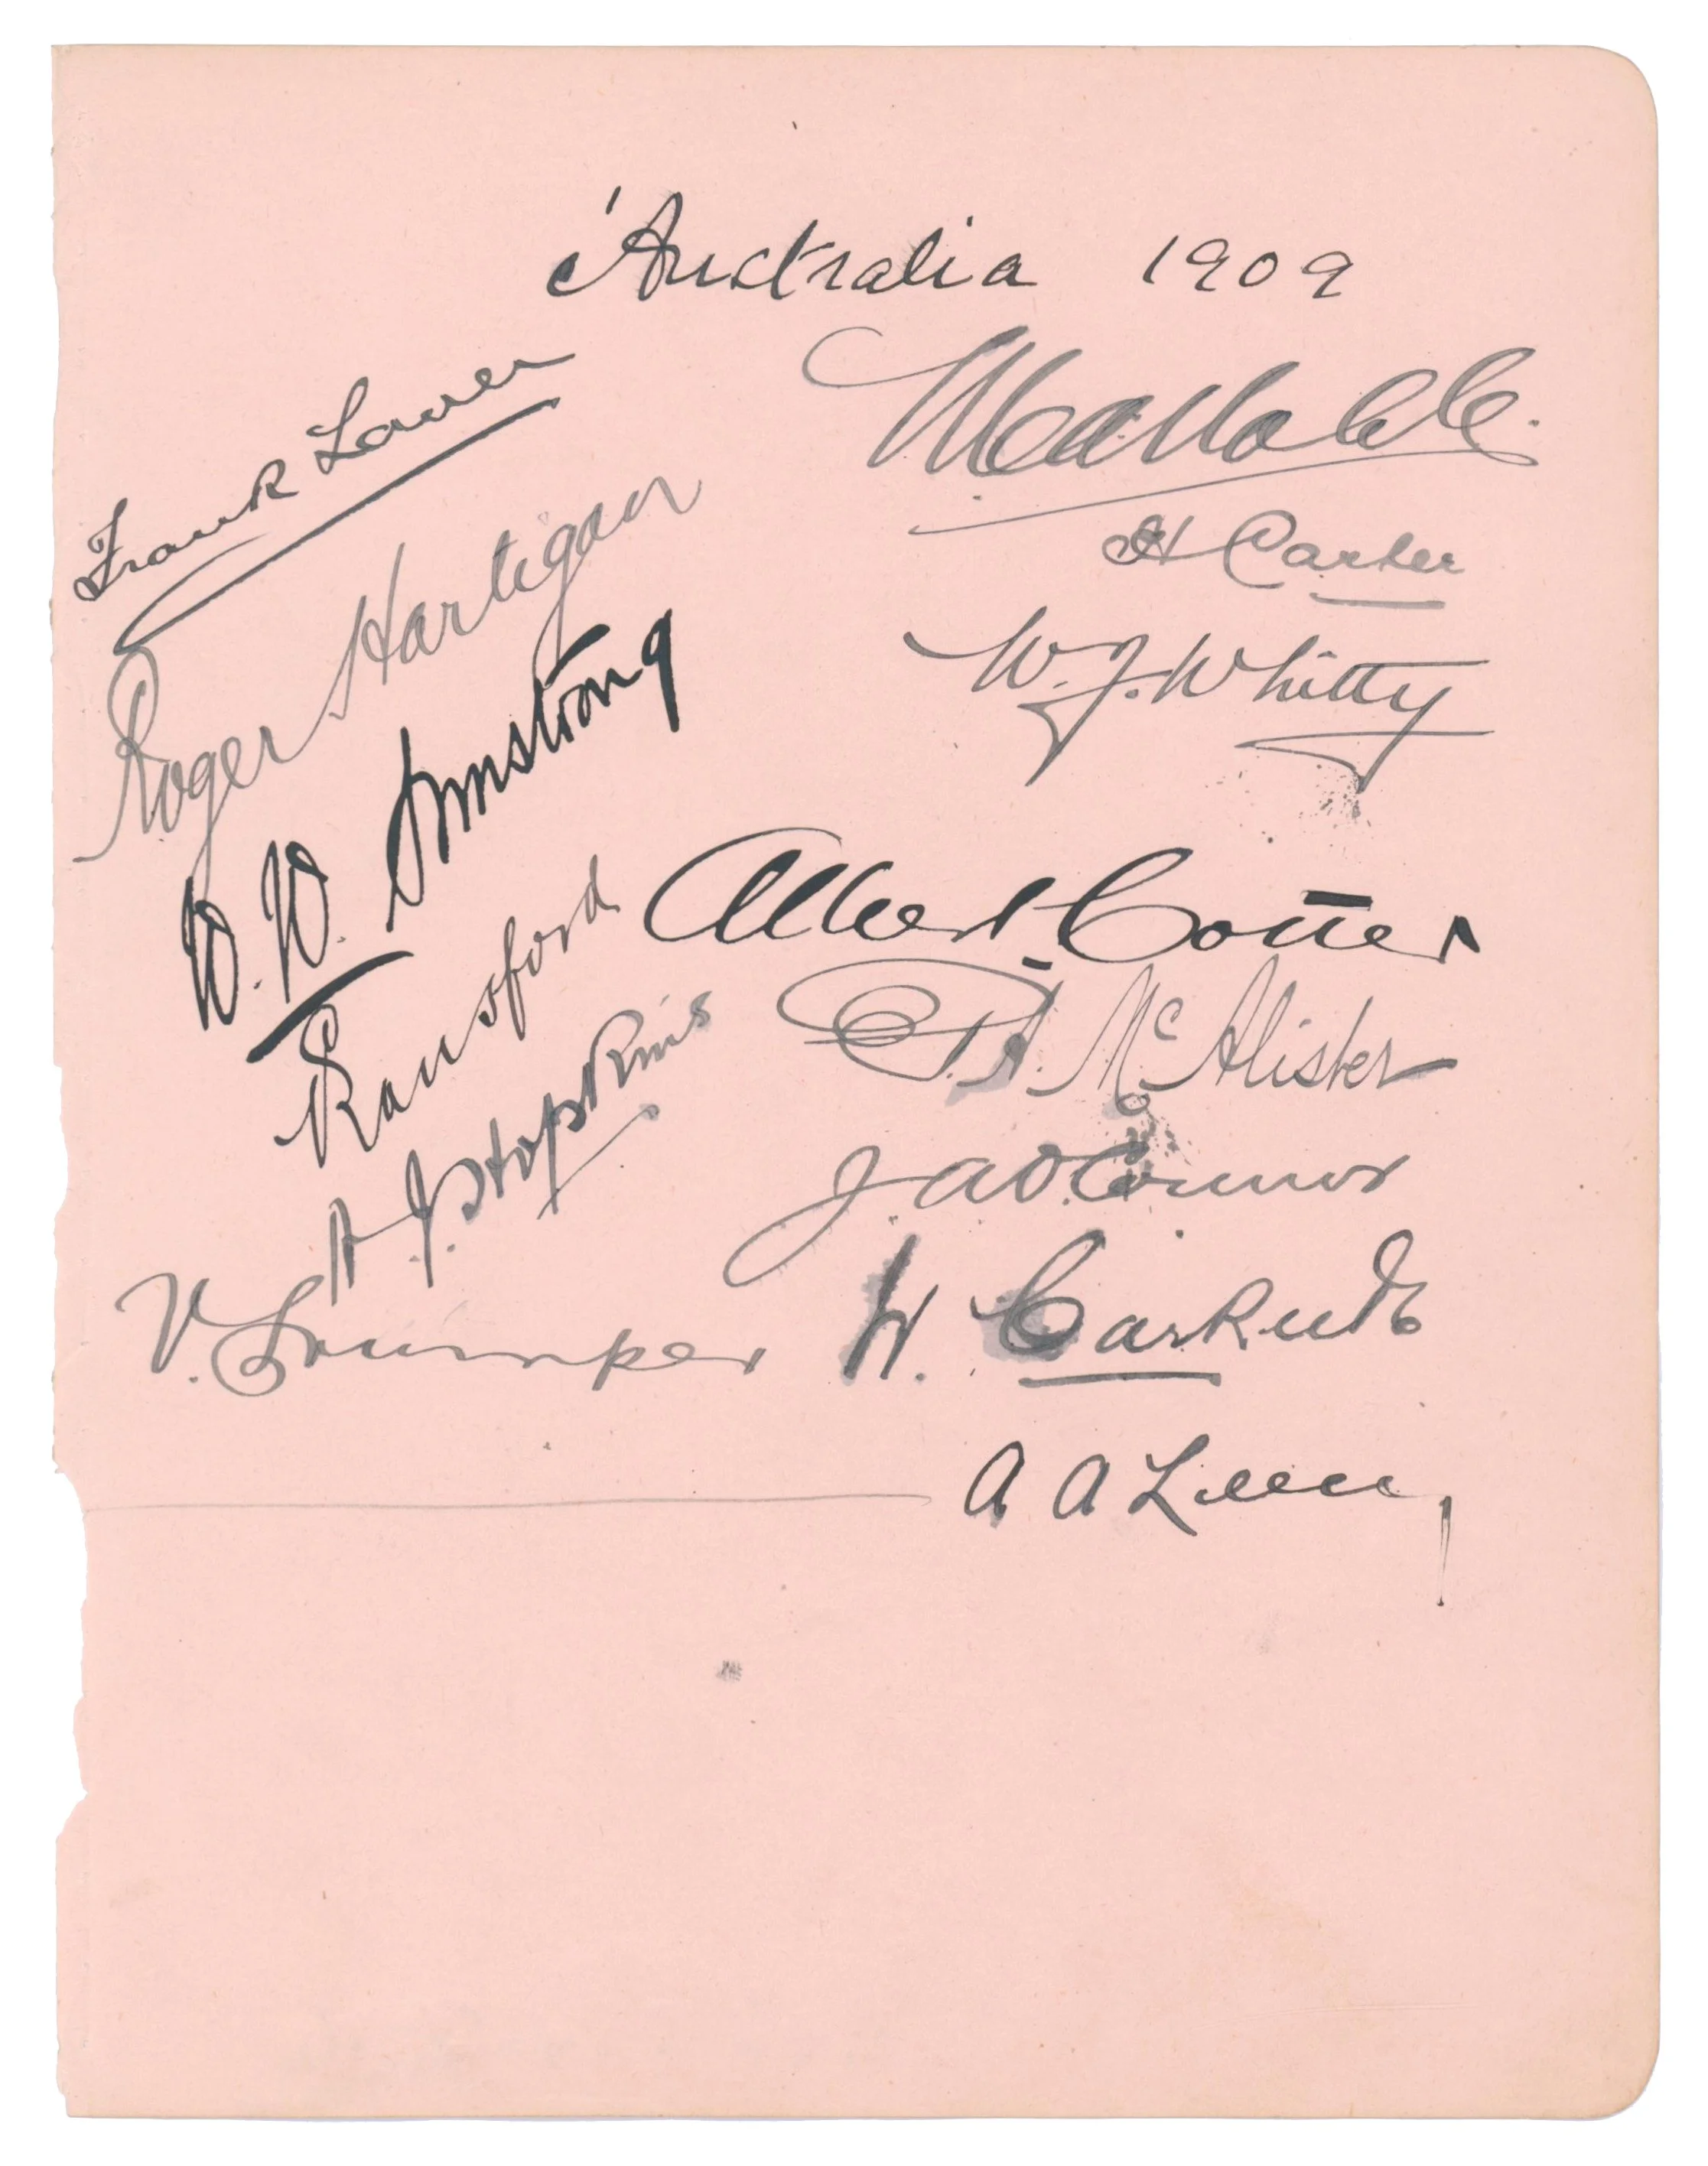 Australia 1909
M. A. Noble
H Carter
W. J. Whitty
Albert Cotter
P. A. McAlister
J. A O.Connor
W. Carkeek
A A Law
Frank Laver
Roger Hartigan
W. W. Armstrong
V Ransford
A. J. Hopkins
V. Trumper